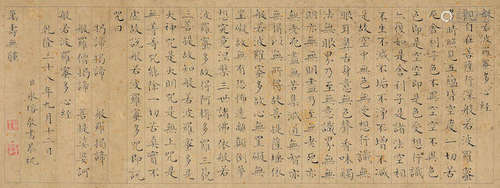 般若波羅蜜多心經
觀自在菩薩行深般若波羅蜜多
時照見五蘊皆空度一切苦
厄舍利子色不異空空不異色
色即是空空即是色受想行識
亦復如是舍利子是諸法空相
不生不滅不垢不淨不增不減
是故空中無色無受想行識無
眼耳鼻舌身意無色聲香味觸
法無眼界乃至無意識界無無
明亦無無明盡乃至無老死亦
無老死盡無苦集滅道無智亦
無得以無所得故菩提薩埵依
般若波羅蜜多故心無罣礙無
罣礙故無有恐怖遠離顛倒夢
想究竟涅槃三世諸佛依般若
波羅蜜多故得阿耨多羅三藐
三菩提故知般若波羅蜜多是
大神咒是大明咒是無上咒是
無等等咒能除一切苦真實不
虛故說般若波羅蜜多咒即說
咒曰
揭諦揭諦 般羅揭諦
般羅僧揭諦 菩提莎婆訶
般若波羅蜜多心經
乾隆三十八年九月十二
日永瑢敬書恭祝
萬壽無疆